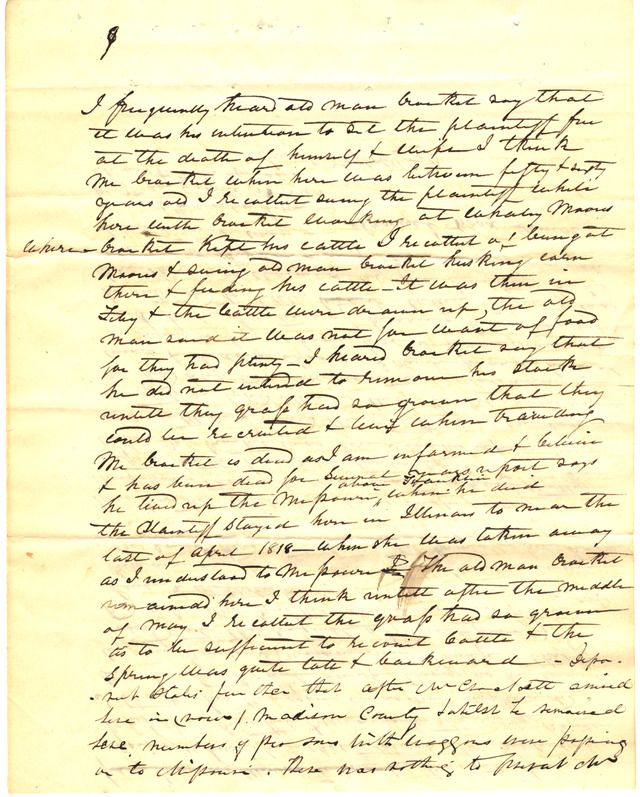 I frequently heard old man Crocket say that
it was his intention to set the plaintiff free
at the death of himself & wife I think
Mr Crocket when here was between fifty & sixty
years old I recollect seing the plaintiff while
here with Crocket working at Whaley Moores
where Crocket kept his cattle I recollect of being at
Moores & seing old man Crocket husking corn
there & feeding his cattle - It was then in
Feby & the Cattle were drawn up, the old
man said it was not for want of food
for they had plenty - I heard Crocket say that
he did not intend to remove his stock
untill they grass had so grown that they
could be recruited & live when traveling
Mr Crocket is dead as I am informed & believe
& has been dead for several years report says
he lived up the Missouri above Franklin when he died
the Plaintiff stayed here in Illinois to near the
last of April 1818 - when she was taken away
as I understood to Missouri The old man Crocket
remained here I think untill after the middle
of May I recollect the grass had so grown
as to be sufficient to recruit Cattle & the
Spring was quite late & backward - Depo-
-nent states further that after Mr Crockett arrived
here in (now) Madison County & whilst he remained
here numbers of persons with waggons were passing
on to Missouri. There was nothing to prevent Mr